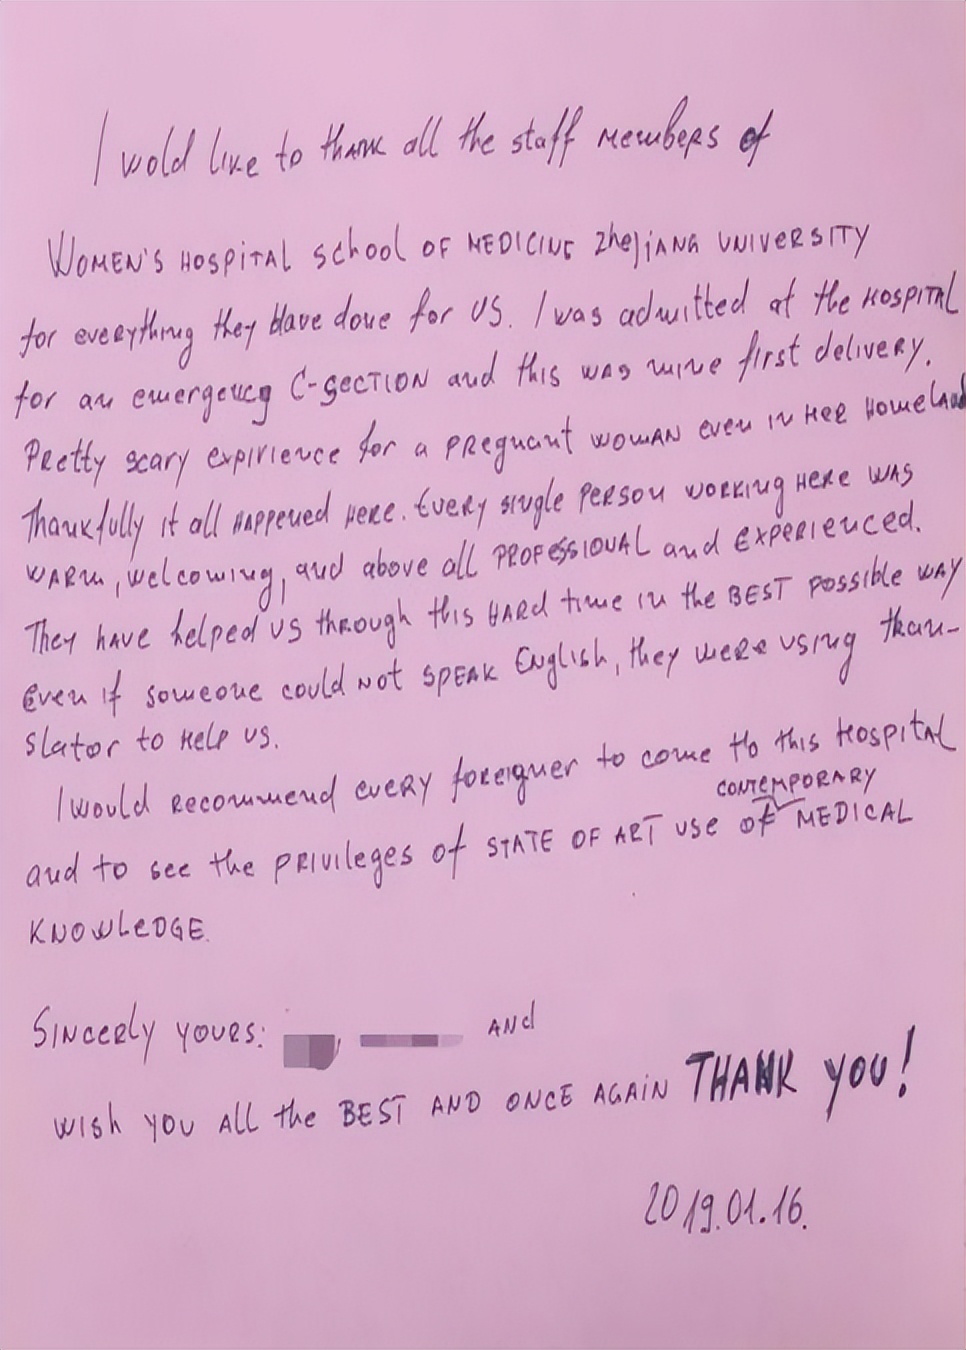 I wold like to thank all the staff members of
WOMEN'S HOSPITAL School OF MEDICINE ZhejiANG UNIVERSITY
for everything they have done for US. I was admitted at the HOSPITAL
for an emergency C-SECTION and this was mine first delivery.
Pretty scary expirience for a pregnant WOMAN even in HER Homeland
Thankfully it all HAPPENED HERE. Every single PERSON WORKING HERE WAS
WARM, welcoming, and above all PROFESSIONAL and EXPERIENCED.
They HAVE helped US THROUGH this HARD time in the BEST POSSIBLE WAY
Even if someone could NOT SPEAK English, they were using tran-
slator to HELP US.
I would RECOMMEND EVERY foreigner to come to this HOSPITAL
CONTEMPORARY
and to see the PRIVILEGES of STATE OF ART USE of MEDICAL
KNOWLEDGE.
SINCERLY YOURS: AND
WISH YOU ALL the BEST AND ONCE AGAIN THANK YOU!
2019.01.16.